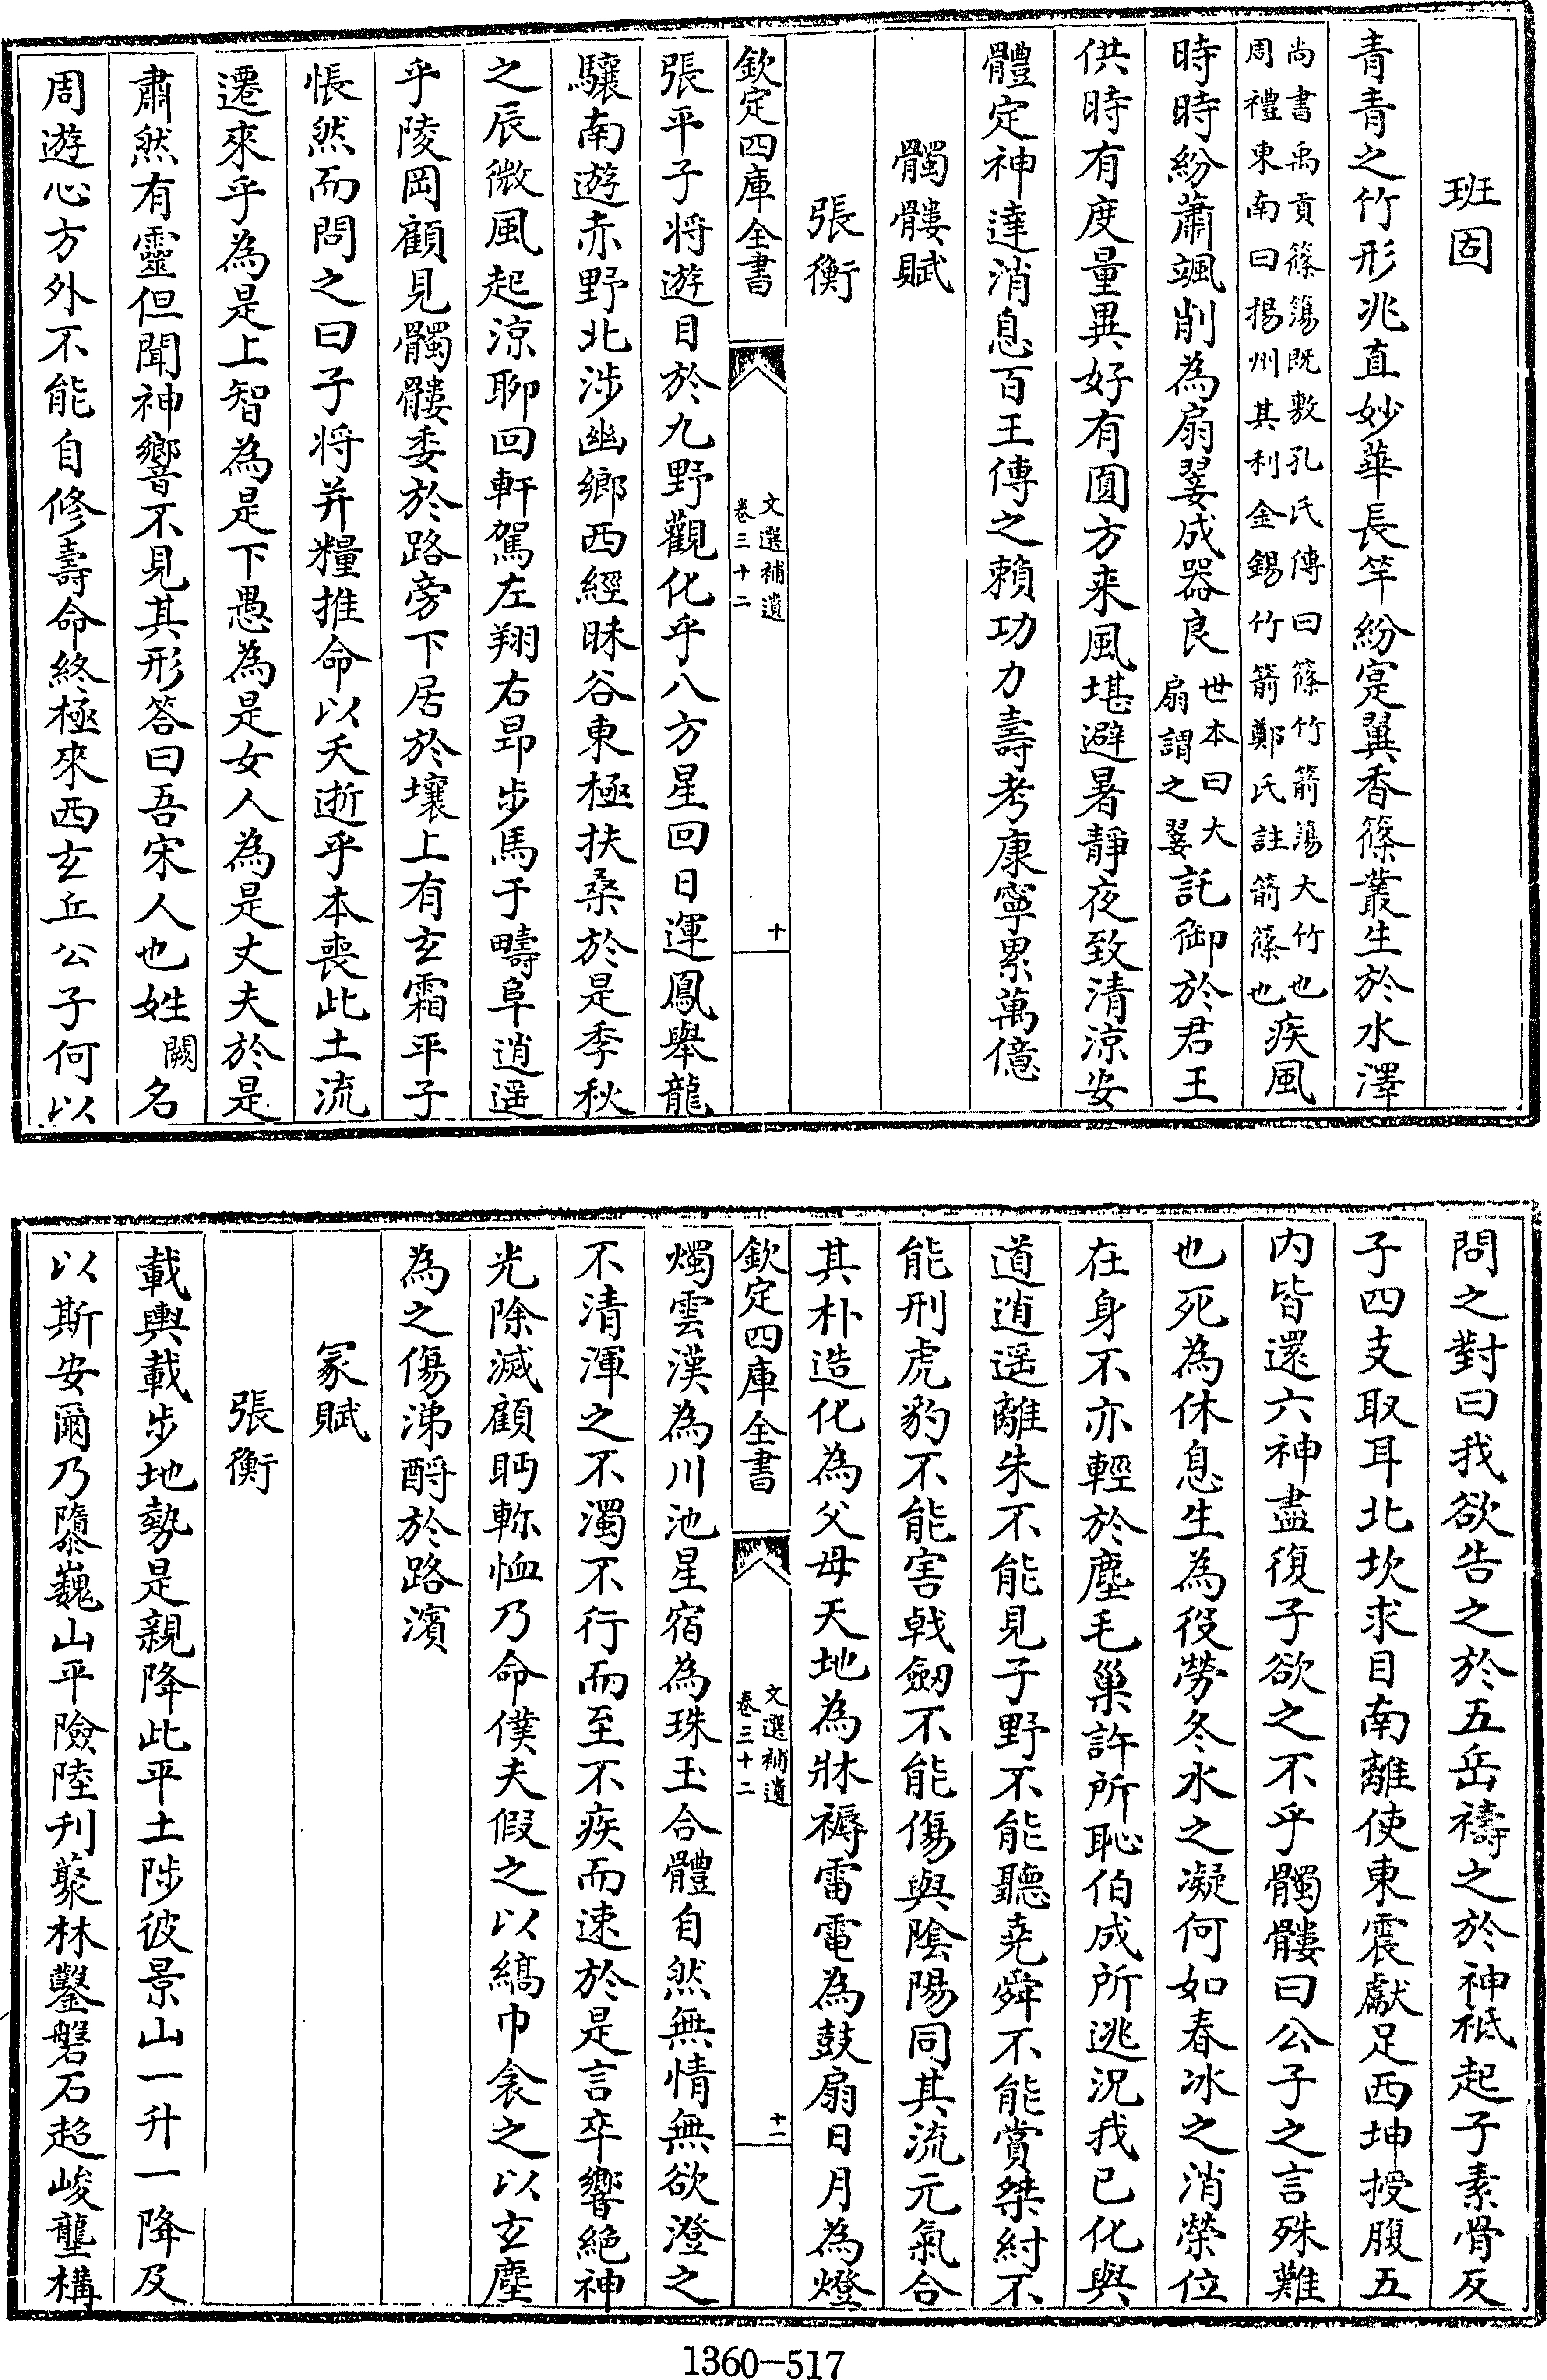 班固
青青之竹形兆直妙華長竿紛寔翼杳篠叢生於水澤
尚書禹貢篠簜既敷孔氏傳曰篠竹箭簜大竹也
周禮東南曰揚州其利金錫竹箭鄭氏註箭篠也
疾風
時時紛蕭颯削為扇翣成器良
世本曰大
扇謂之翣
託御於君王
供時有度量異好有圓方来風堪避暑静夜致清涼安
體定神達消息百王傳之賴功力壽考康寧累萬億
髑髏賦
張衡
欽定四庫全書
文選補遺
卷三十二
十
張平子将遊目於九野觀化乎八方星回日運鳳舉龍
驤南遊赤野北涉幽鄉西經昧谷東極扶桑於是季秋
之辰微風起涼聊回軒駕左翔右昂步馬于疇阜逍遥
乎陵岡顧見髑髏委於路旁下居於壤上有玄霜平子
悵然而問之曰子将并糧推命以夭逝乎本喪此土流
遷來乎為是上智為是下愚為是女人為是丈夫於是
肅然有靈但聞神響不見其形答曰吾宋人也姓
闕
名
周遊心方外不能自修壽命終極來西玄丘公子何以
問之對曰我欲告之於五岳禱之於神祗起子素骨反
子四支取耳北坎求目南離使東震獻足西坤授腹五
内皆還六神盡復子欲之不乎髑髏曰公子之言殊難
也死為休息生為役勞冬水之凝何如春冰之消榮位
在身不亦輕於塵毛巢許所恥伯成所逃況我已化與
道逍遥離朱不能見子野不能聽堯舜不能賞桀紂不
能刑虎豹不能害戟劒不能傷與陰陽同其流元氣合
其朴造化為父母天地為牀褥雷電為鼓扇日月為燈
欽定四庫全書
文選補遺
卷三十二
十一
燭雲漢為川池星宿為珠玉合體自然無情無欲澄之
不清渾之不濁不行而至不疾而速於是言卒響絶神
光除滅顧眄軫恤乃命僕夫假之以縞巾衾之以玄塵
為之傷涕酹於路濱
冢賦
張衡
載輿載步地勢是親降此平土陟彼景山一升一降及
以斯安爾乃隳巍山平險陸刋藂林鑿磐石起峻壟構
1360-517